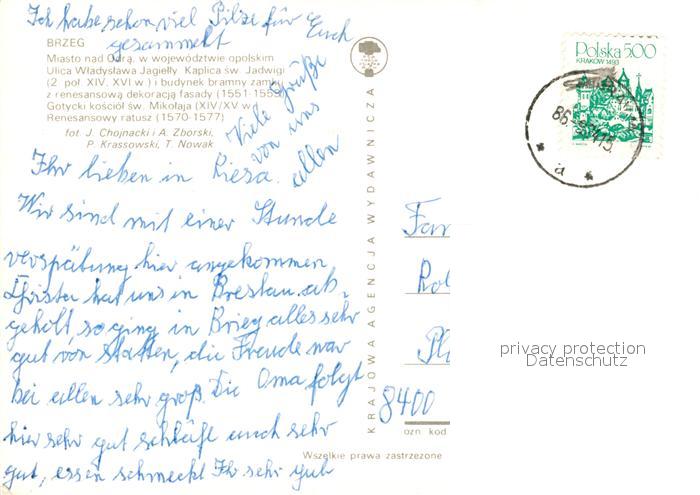 Ich habe schon viel Pilze für Euch
gesammelt
Viele Grüße
von uns
allen
BRZEG
Miasto nad Odrą, w województwie opolskim
Ulica Władysława Jagiełły. Kaplica św. Jadwigi
(2 poł. XIV, XVI w.) i budynek bramny zamku
z renesansową dekoracją fasady (1551-155
Gotycki kościół św. Mikołaja (XIV/XV w
Renesansowy ratusz (1570-1577)
fot. J. Chojnacki i A. Zborski,
P. Krassowski, T. Nowak
Ihr lieben in Riesa.
Wir sind mit einer Stunde
verspätung hier angekommen
Christa hat uns in Breslau ab-
geholt so ging in Brieg alles sehr
gut von statten, die Freude war
bei allen sehr groß. Die Oma folgt
hier sehr gut schläft auch sehr
gut, essen schmeckt Ihr sehr gut
KRAJOWA AGENCJA WYDAWNICZA
Polska 5,00
KRAKÓW 1493
86
15
a
Fam
Rol
Pl
8400
ozn kod
Wszelkie prawa zastrzeżone
privacy protection
Datenschutz